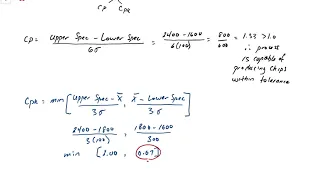 Cp Cpk
Cp = Upper Spec - Lower Spec / 6σ = 2400 - 1600 / 6(100) = 800 / 600 = 1.33 > 1.0
∴ process
is capable of
producing chips
within tolerance
Cpk = min [ Upper Spec - X̄ / 3σ , X̄ - Lower Spec / 3σ ]
2400 - 1800 / 3(100) 1800 - 1600 / 300
min [ 2.00, 0.67 ]